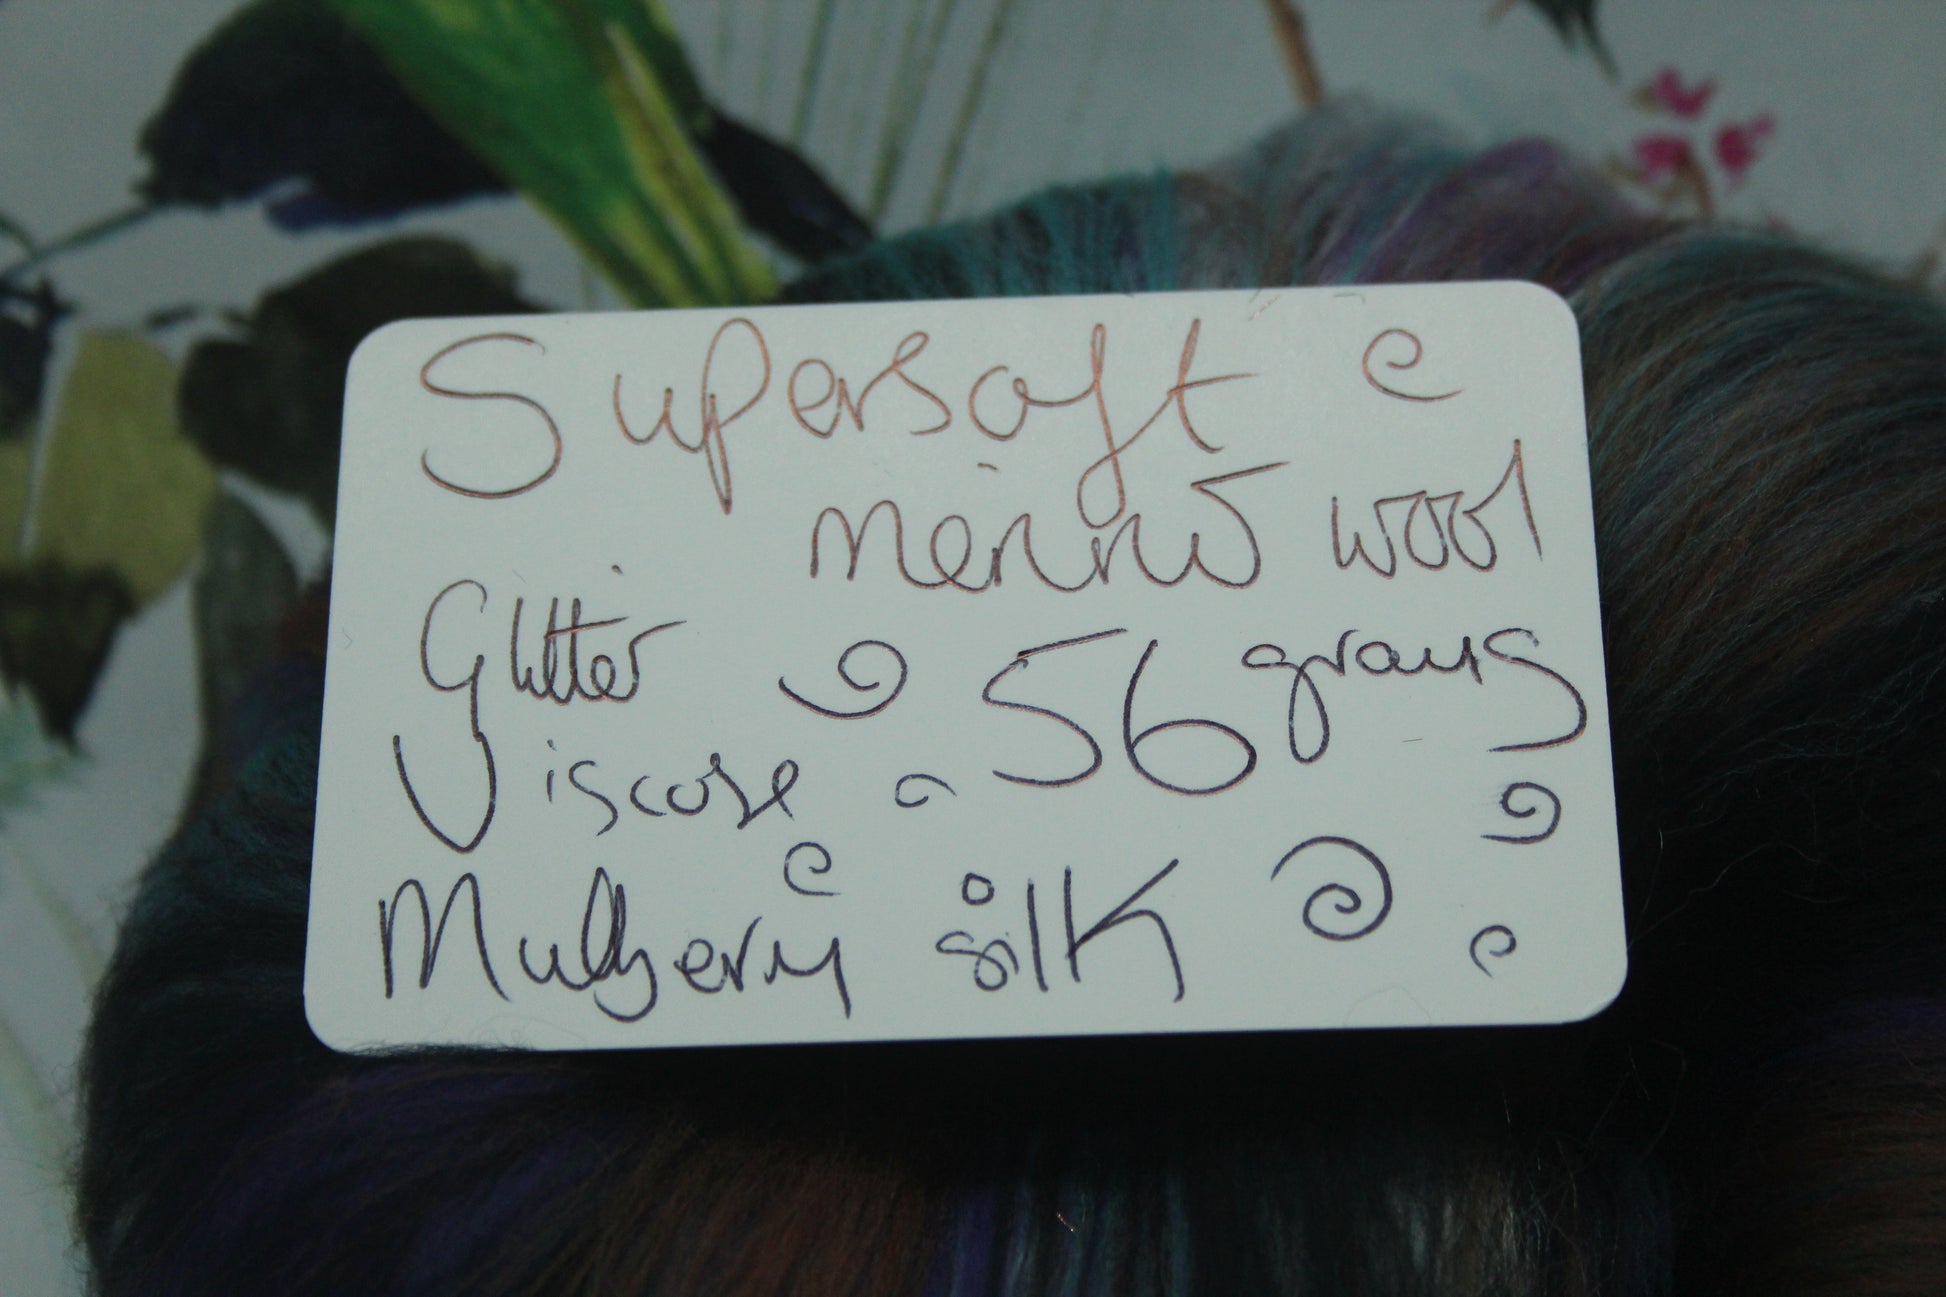 Supersoft
merino wool
Glitter
56 grams
Viscose
Mulberry silk